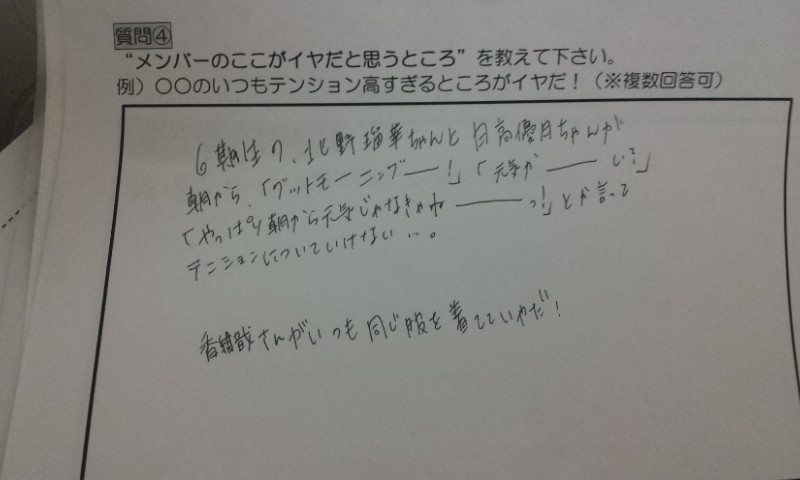 質問④
“メンバーのここがイヤだと思うところ”を教えて下さい。
例）〇〇のいつもテンション高すぎるところがイヤだ！（※複数回答可）
6期生の、北野瑠華ちゃんと日高優月ちゃんが
朝から、「グットモーニングー！」「元気かーい？」
「やっぱり朝から元気じゃなきゃねーっ！」とか言って
テンションについていけない…。
香織さんがいつも同じ服を着てていやだ！